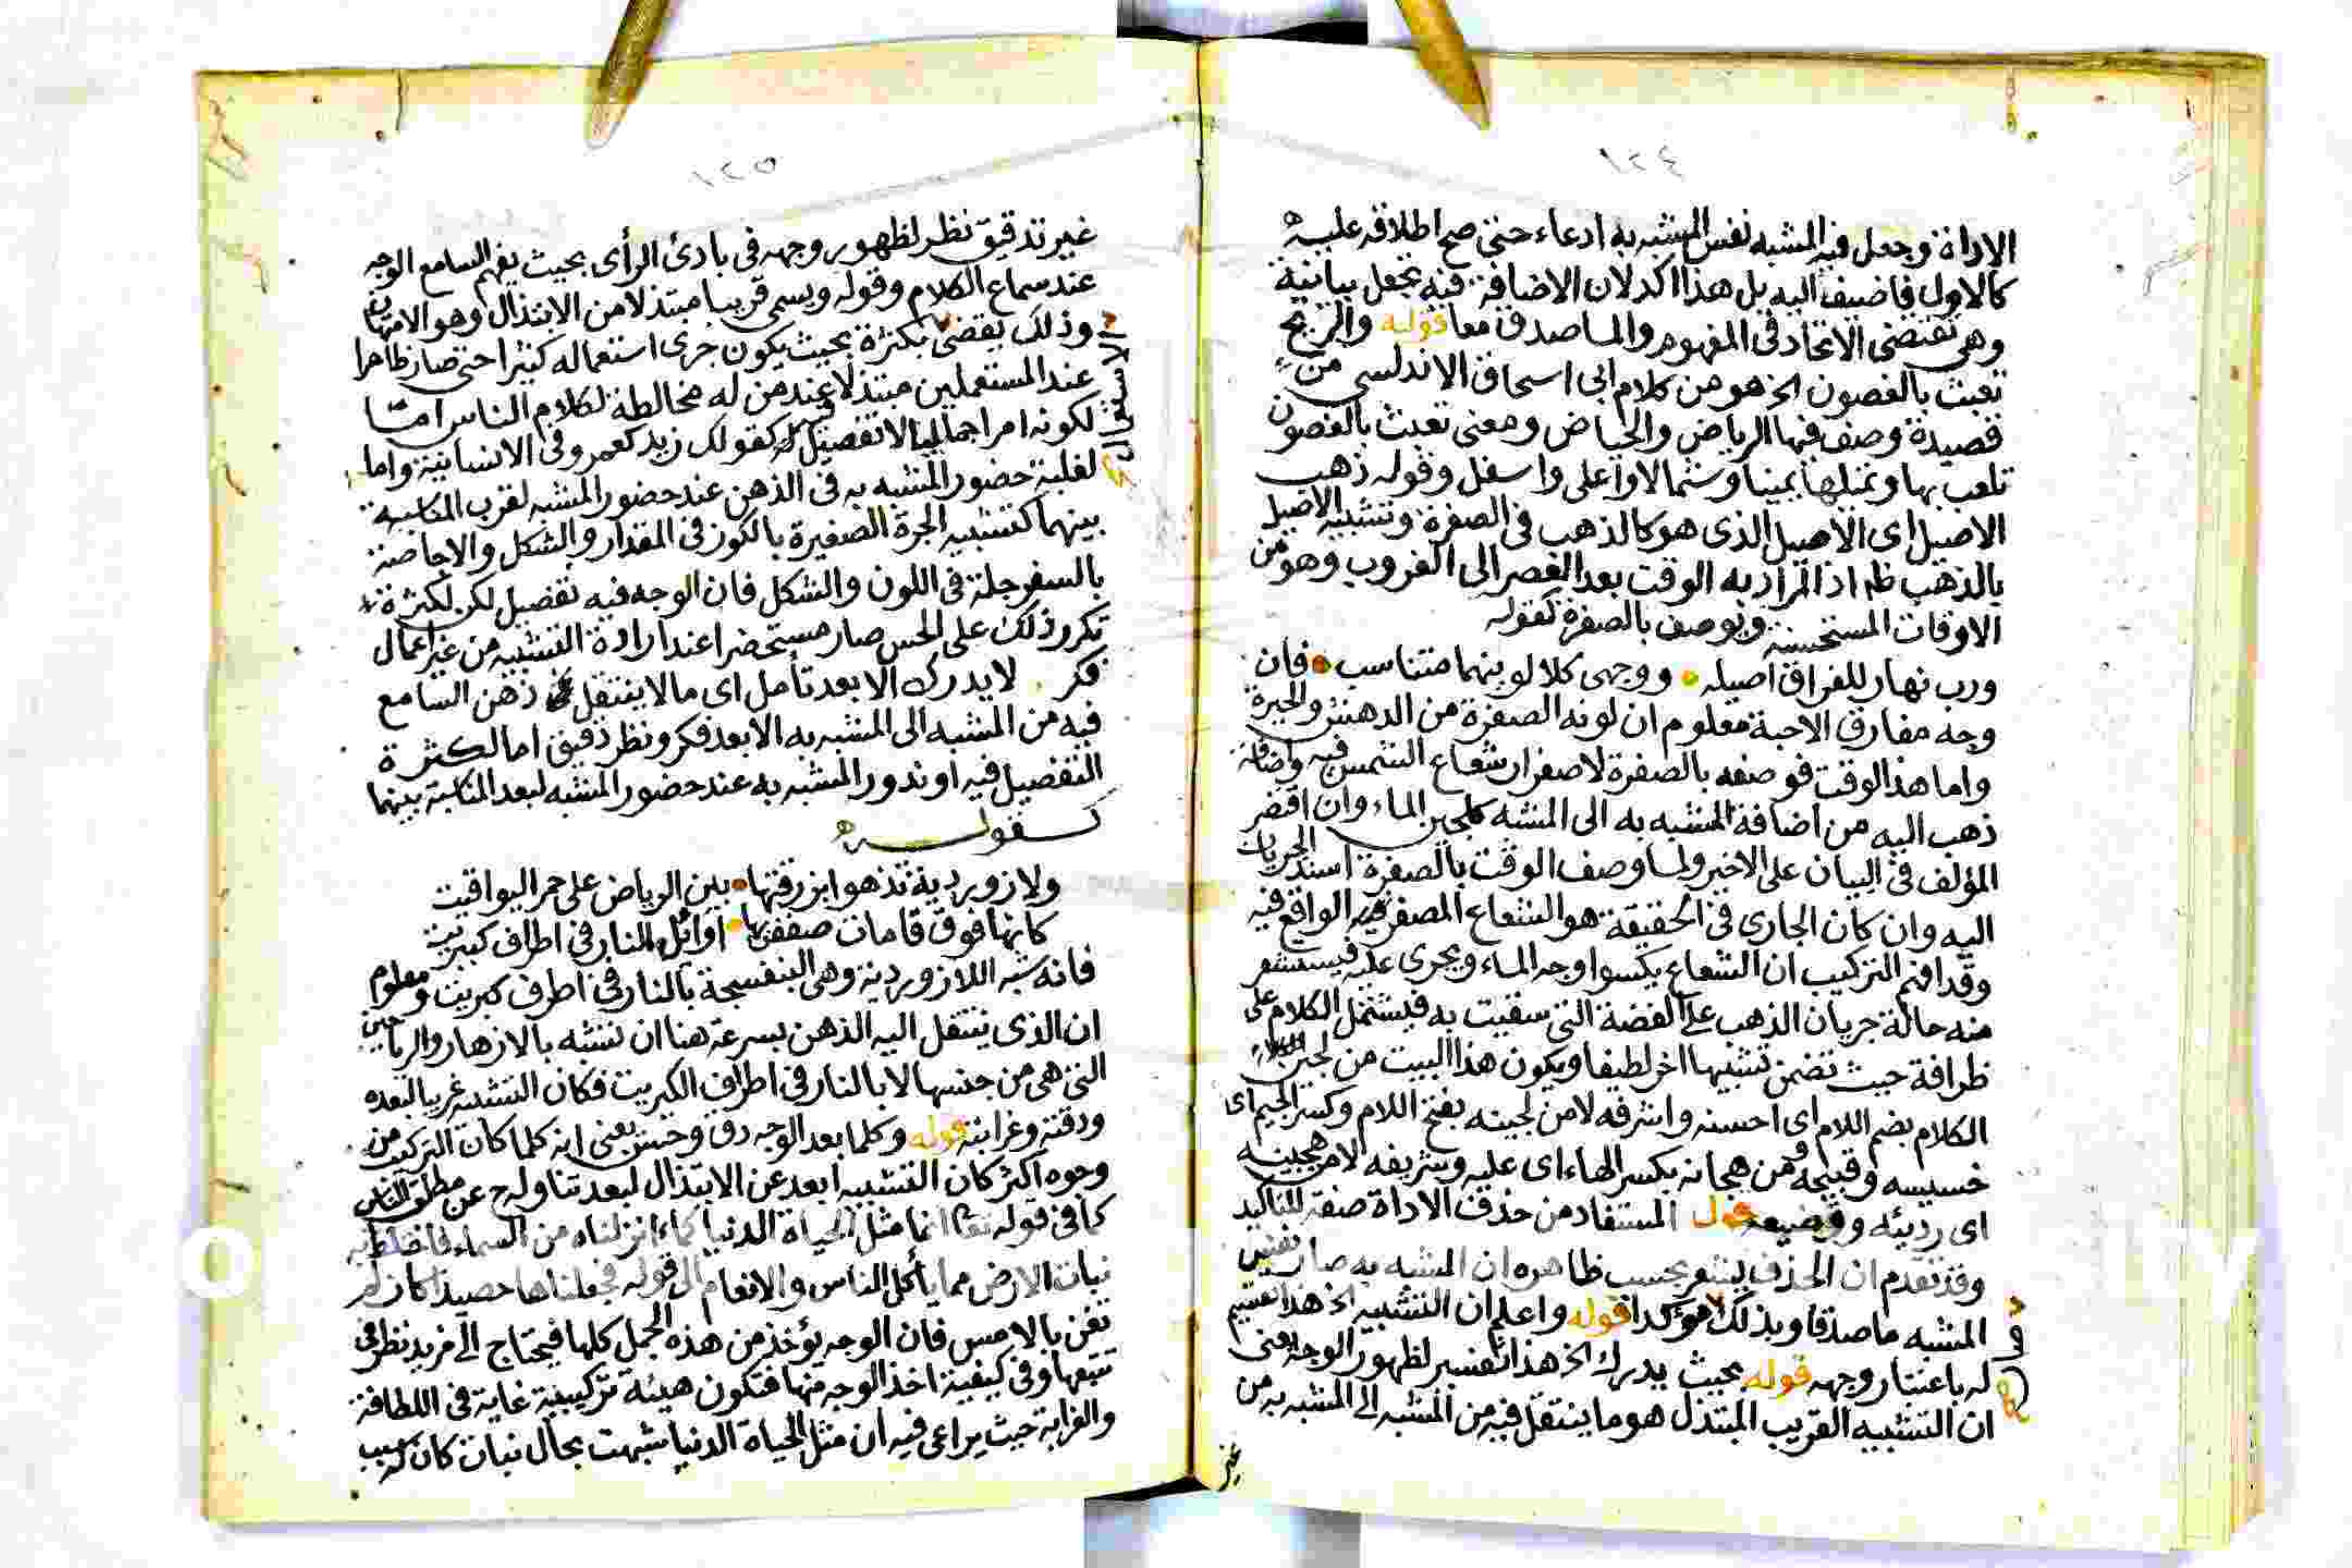 ١٢٤
الاداة وجعل فيه المشبه نفس المشبه به ادعاء حتى صح اطلاقه عليه
كالاول فاضيف اليه بل هذا اكد لان الاضافة فيه تجعل بيانية
وهي تقتضى الاتحاد فى المفهوم والماصدق معا قوله والريح
تعبث بالغصون الخ هو من كلام ابى اسحاق الاندلسى من
قصيدة وصف فيها الرياض والحياض ومعنى تعبث بالغصون
تلعب بها وتميلها يمينا وشمالا واعلى واسفل وقوله ذهب
الاصيل اى الاصيل الذى هو كالذهب فى الصفرة وتشبيه الاصيل
بالذهب ظ اذ المراد به الوقت بعد العصر الى الغروب وهو من
الاوقات المستحسنة ويوصف بالصفرة كقوله
ورب نهار للفراق اصيله ووجهى كلا لونيهما متناسب فان
وجه مفارق الاحبة معلوم ان لونه الصفرة من الدهش والحيرة
واما هذا الوقت فوصفه بالصفرة لاصفرار شعاع الشمس فيه واضافة
ذهب اليه من اضافة المشبه به الى المشبه كلجين الماء وان اقتصر
المؤلف فى البيان على الاخير ولما وصف الوقت بالصفرة اسند الجريان
اليه وان كان الجارى فى الحقيقة هو الشعاع المصفر الواقع فيه
وقد افهم التركيب ان الشعاع يكسوا وجه الماء ويجرى عليه فيستشعر
منه حالة جريان الذهب على الفضة التى سقيت به فيشتمل الكلام على
ظرافة حيث تضمن تشبيها اخر لطيفا ويكون هذا البيت من لجين
الكلام بضم اللام اى احسنه واشرفه لا من لجينه بفتح اللام وكسر الجيم اى
خسيسه وقبيحه ومن هجانه بكسر الهاء اى عليه وشريفه لا من هجينه
اى رديئه ووضيعه قول المستفاد من حذف الاداة صفة للتاكيد
وقد تقدم ان الحذف يشعر بحسب ظاهره ان المشبه به صار نفس
المشبه ماصدقا وبذلك مؤكدا قوله واعلم ان التشبيه الخ هذا تقسيم
له باعتبار وجهه قوله بحيث يدرك الخ هذا تفسير لظهور الوجه يعنى
ان التشبيه القريب المبتذل هو ما ينتقل فيه من المشبه الى المشبه به من
غير
١٢٥
غير تدقيق نظر لظهور وجهه فى بادئ الرأى بحيث يفهم السامع الوجه
عند سماع الكلام وقوله ويسمى قريبا مبتذلا من الابتذال وهو الامتهان
وذلك يقضى بكثرة بحيث يكون جرى استعماله كثيرا حتى صار ظاهرا
عند المستعملين مبتذلا عند من له مخالطة لكلام الناس اما
لكونه امرا جماليا لا تفصيل فيه كقولك زيد كعمرو فى الانسانية واما
لغلبة حضور المشبه به فى الذهن عند حضور المشبه لقرب المناسبة
بينهما كتشبيه الجرة الصغيرة بالكوز فى المقدار والشكل والاجاصة
بالسفرجلة فى اللون والشكل فان الوجه فيه تفصيل لكن لكثرة
تكرر ذلك على الحس صار مستحضرا عند ارادة التشبيه من غير اعمال
فكر لا يدرك الا بعد تأمل اى ما لا ينتقل ذهن السامع
فيه من المشبه الى المشبه به الا بعد فكر ونظر دقيق اما لكثرة
التفصيل فيه او ندور المشبه به عند حضور المشبه لبعد المناسبة بينهما
كقوله
ولازوردية تزهوا بزرقتها بين الرياض على حمر اليواقيت
كانها فوق قامات ضعفن بها اوائل النار فى اطراف كبريت
فانه شبه اللازوردية وهى البنفسجة بالنار فى اطراف كبريت ومعلوم
ان الذى ينتقل اليه الذهن بسرعة هنا ان تشبه بالازهار والرياحين
التى هى من جنسها لا بالنار فى اطراف الكبريت فكان التشبيه غريبا لبعده
ودقته وغرابته قوله وكلما بعد الوجه دق وحسن يعنى انه كلما كان التركيب من
وجوه اكثر كان التشبيه ابعد عن الابتذال لبعد تناوله ح عن مطلق الناس
كما فى قوله تعا انما مثل الحياة الدنيا كماء انزلناه من السماء فاختلط به
نبات الارض مما يأكل الناس والانعام الى قوله فجعلناها حصيدا كان لم
تغن بالامس فان الوجه يؤخذ من هذه الجمل كلها فيحتاج الى مزيد نظر فى
تتبعها وفى كيفية اخذ الوجه منها فتكون هيئة تركيبية غاية فى اللطافة
والغرابة حيث يراعى فيه ان مثل الحياة الدنيا شبهت بحال نبات كان له سبب